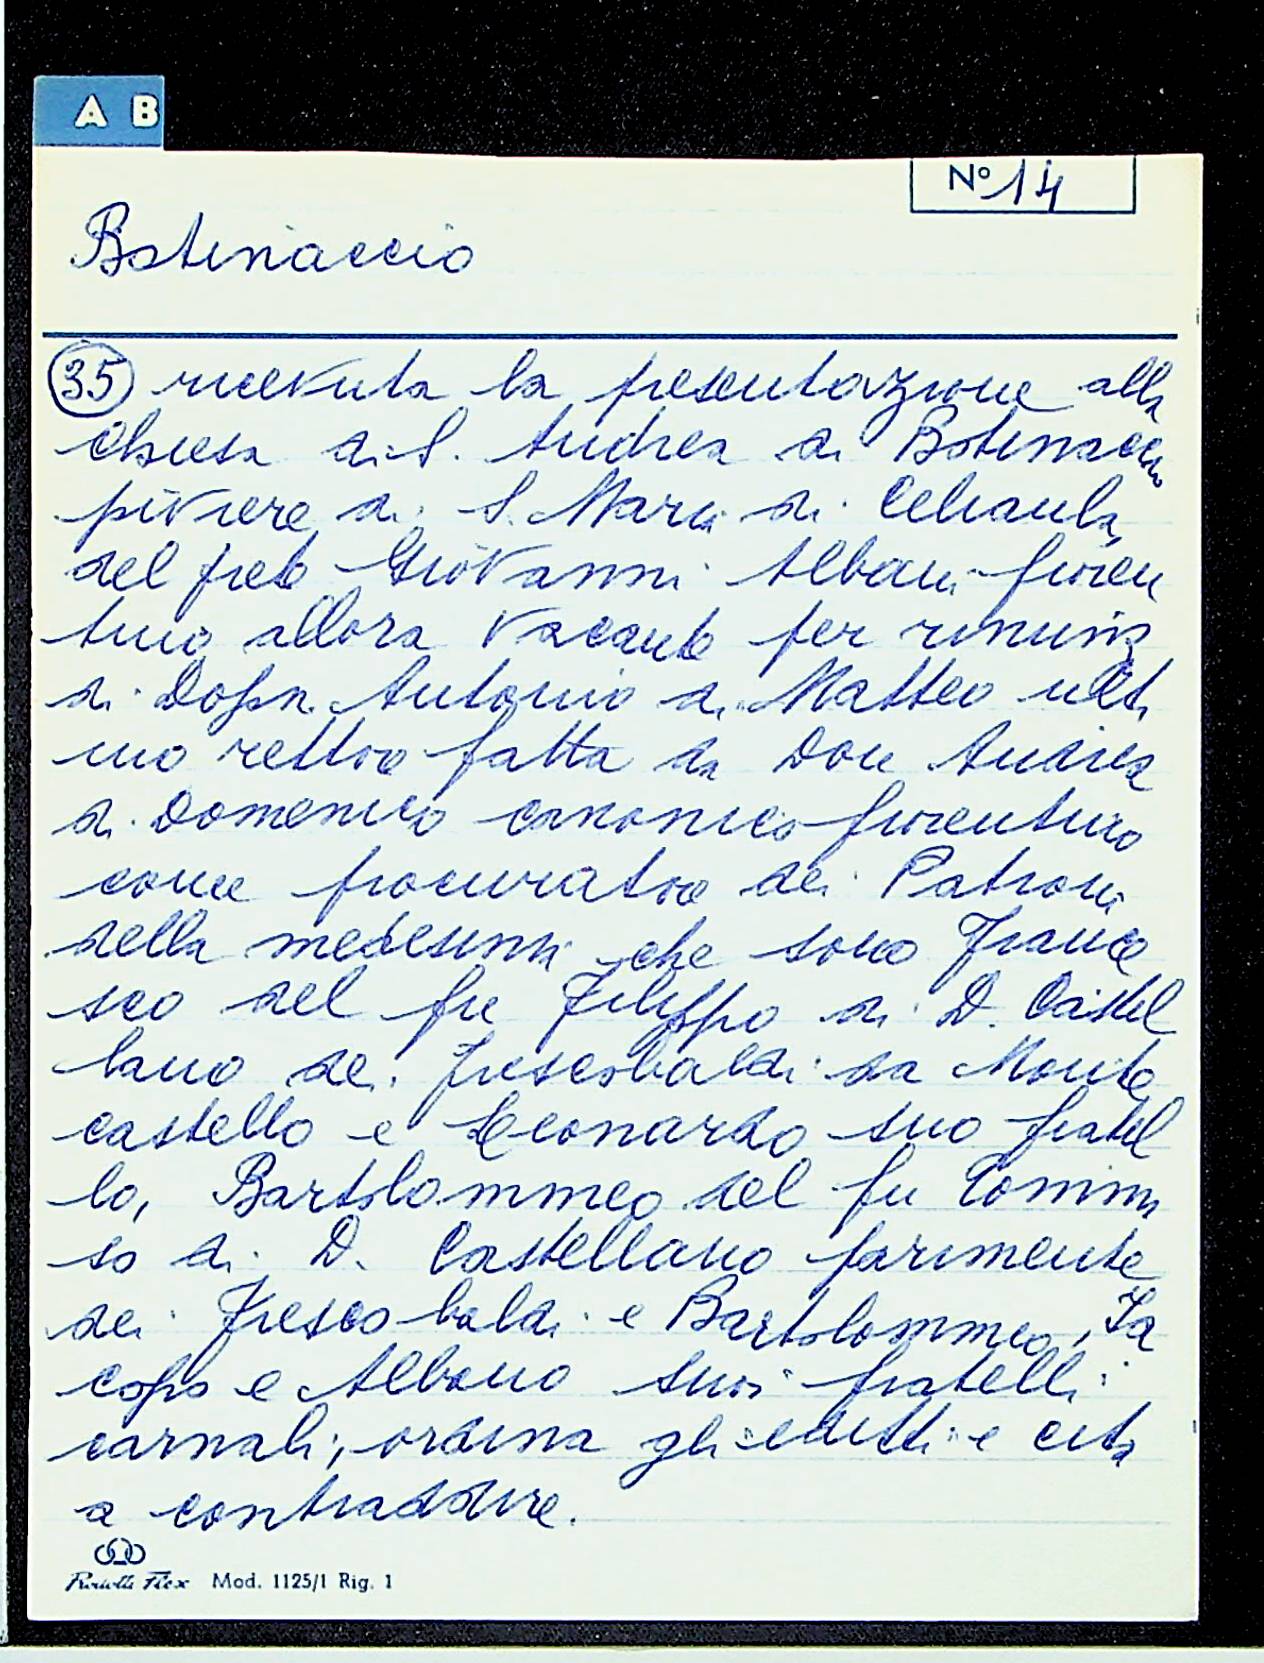 A B
Nº 14
Botinaccio
35 ricevuta la presentazione alla
chiesa di S. Andrea di Botinaccio
piviere di S. Maria di Celiaula,
del prete Giovanni Albani fioren
tino allora vacante per rinunzia
di Dopn. Antonio di Matteo ulti
mo rettore fatta da Don Andrea
di Domenico canonico fiorentino
come procuratore dei Patroni
della medesima che sono France
sco del fu Filippo di D. Castel
lano dei Frescobaldi da Monte
castello e Leonardo suo fratel
lo, Bartolommeo del fu Tomma
so di D. Castellano parimente
dei Frescobaldi e Bartolommeo, Ia
copo e Albano suoi fratelli
carnali; ordina gli editti e cita
a contraddire.
Mod. 1125/1 Rig. 1